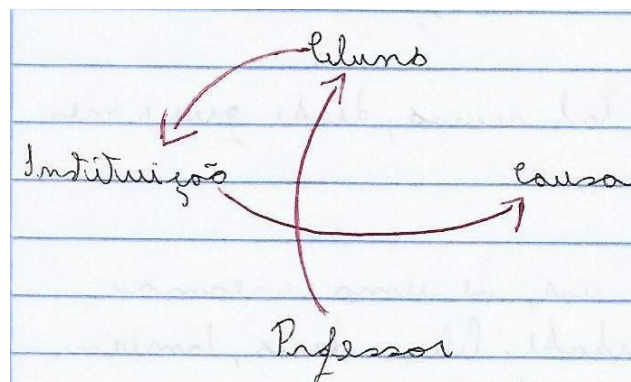 Aluno
Instituição Causa
Professor